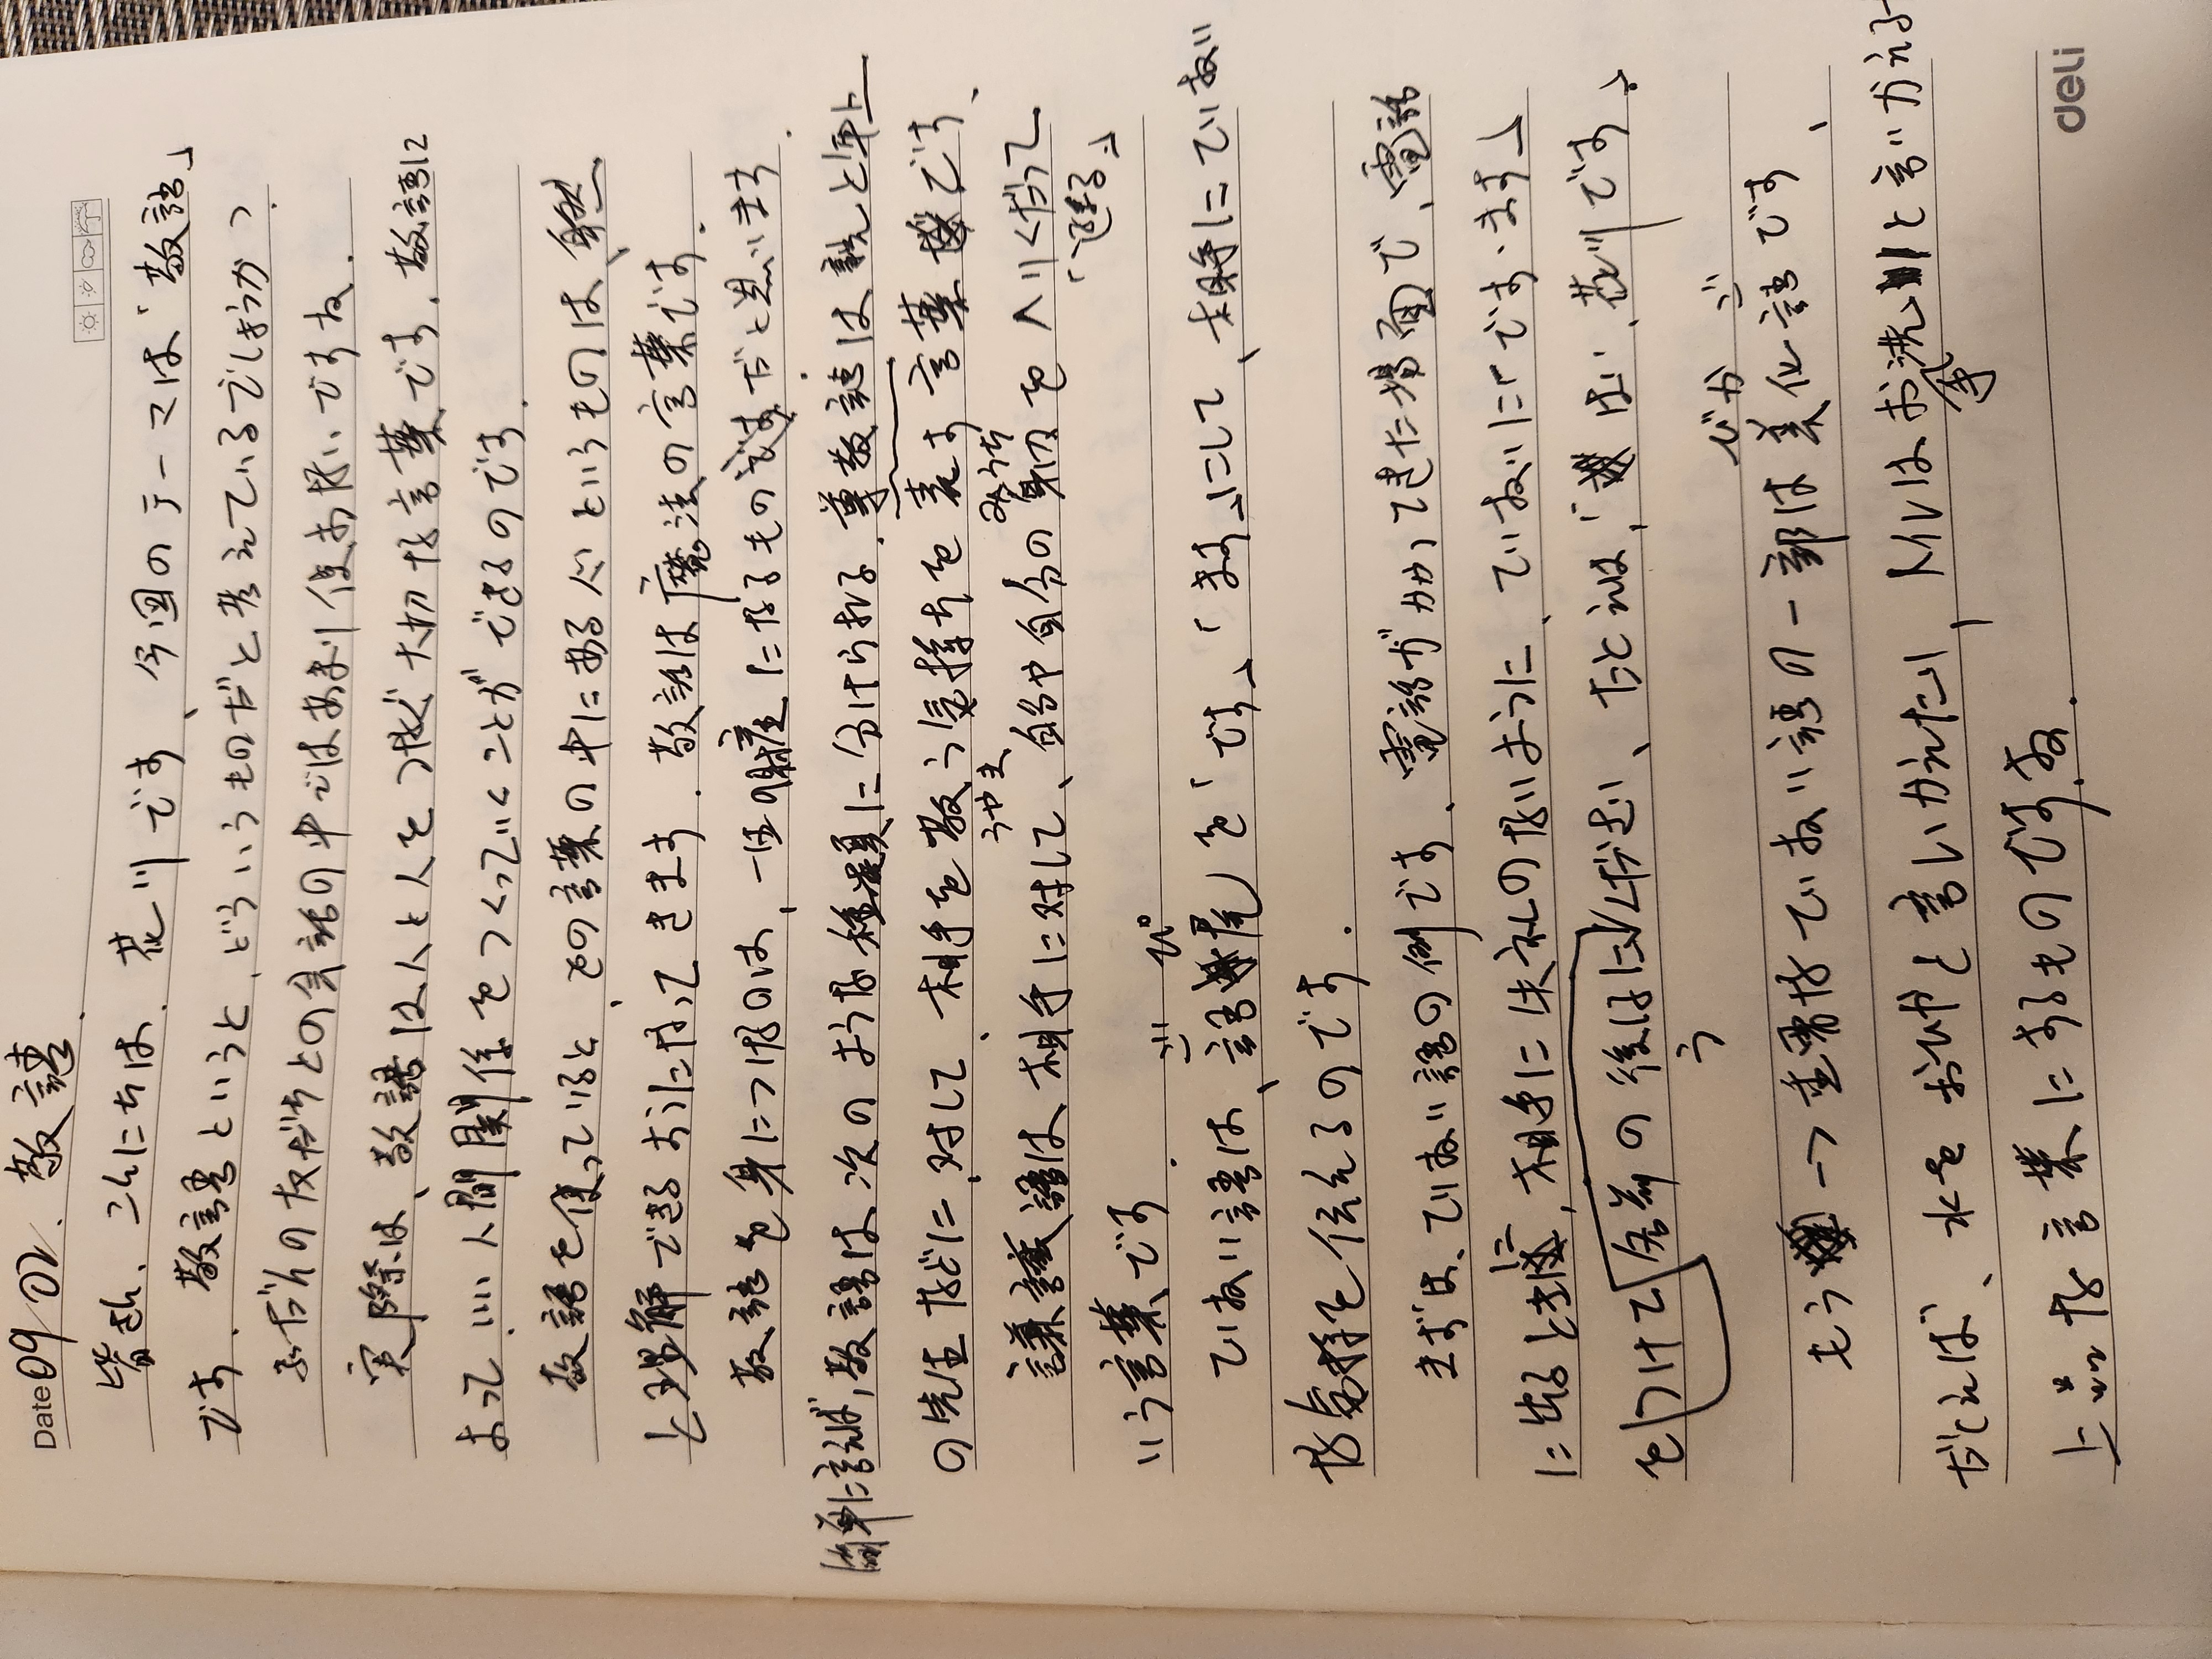 Date 09/02. 敬語.
皆さん、こんにちは. 花川です、今回のテーマは「敬語」
です. 敬語というと、どういうものだと考えているでしょうか
ふだんの友だちとの会話の中ではあまり使あ無いですね.
実際は、敬語は人と人をつなぐ大切な言葉です. 敬語に
よって、いい人間関係をつくっていくことができるのです.
敬語を使っていると、その言葉の中にある心というものは、自然
と理解できるようになってきます. 敬語は魔法の言葉です.
敬語を身につけるのは、一生の財産になるものだと思います.
簡単に言えば、敬語は次のような種類に分けられる. 尊敬語は親と年上
の先生などに対して、相手を敬う気持ちを表す言葉です、
うやま
謙譲語は、相手に対して、自分や自分の身内をへりくだって
みうち
「返る」
いう言葉です.
ごび
ていねい語は、語尾を「です」、「ます」にして、相手にていねい
な気持を伝えるのです.
まずは、ていねい語の例です、電話がかかってきた場面で、電話
に出るときに、相手に失礼のないように、ていねいに「です・ます」
をつけて名前の後はに
う
たとえば、「はい、花川です」、
びかご
もう一つ重要なていねい語の一部は美化語です、
だとえば、水をおひやと言いかえたり、トイレはお洗と言いかえる
争
上品な言葉にあるものですね.
deli